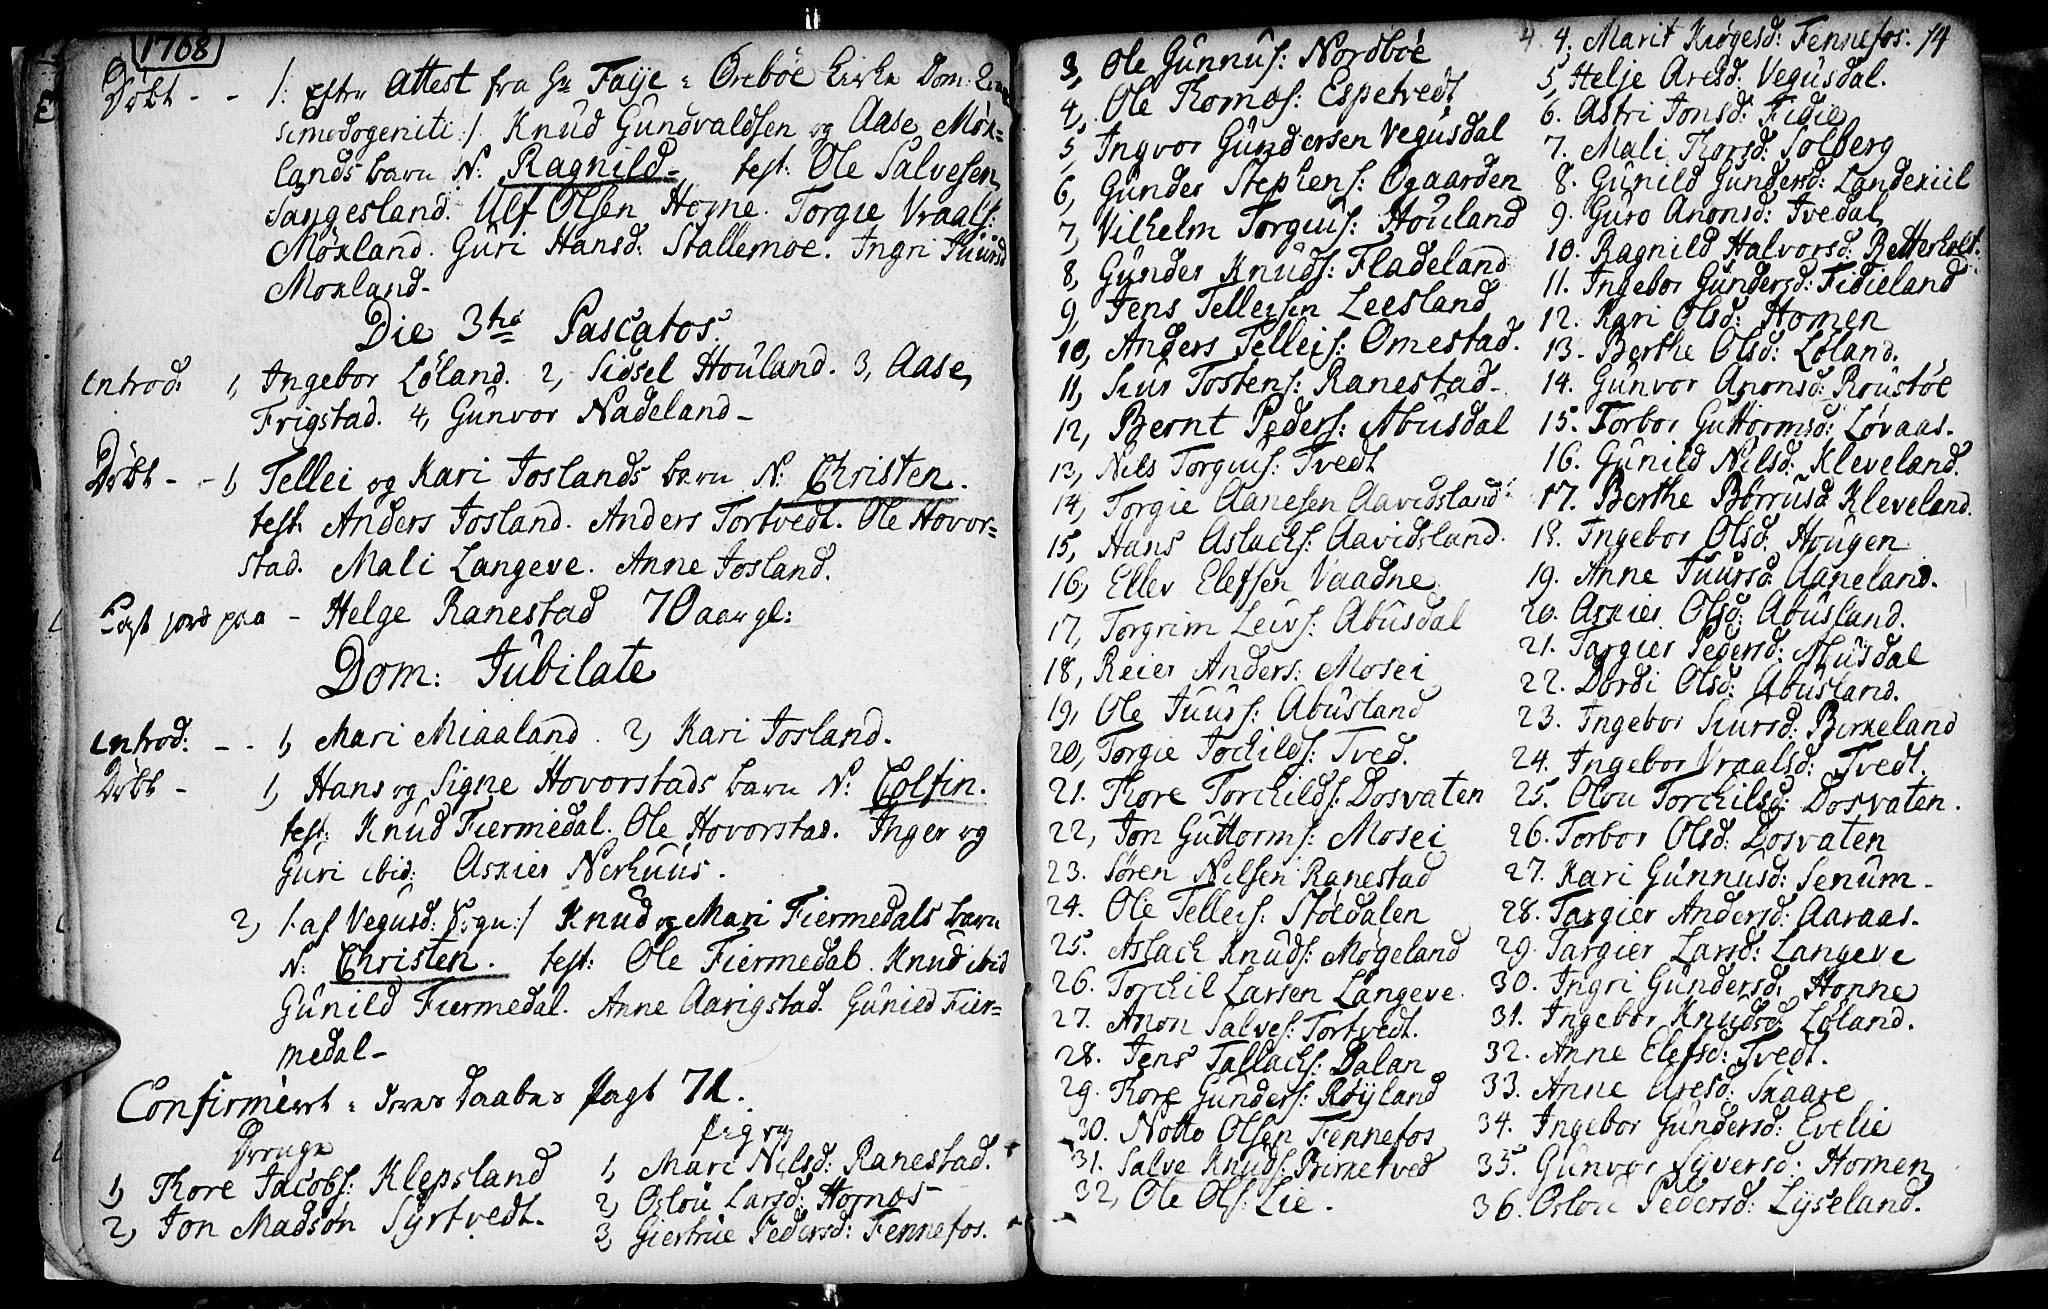 1768
Døbt - - /: efter Attest fra Hr Faije i Orebøe Kirke Dom:
simodogeniti :/ Knud Gundvaldsen og Aase Møx-
lands barn N: Ragnild - test: Ole Salvesen
Sangesland. Ulf Olsen Horne. Torgie Vraals:
Møxland. Guri Hansd: Stallemoe. Ingri Tuursd
Moxland -
Die 3tio Pascatos.
Introd: 1, Ingebor Løland. 2, Sidsel Houland. 3, Aase
Frigstad. 4, Gunvor Nadeland -
Døbt - - 1, Tellei og Kari Joslands barn N: Christen.
test: Anders Josland. Anders Tortvedt. Ole Hovor-
stad. Mali Langeve. Anne Josland.
Kast jord paa - Helge Ranestad 70 aar gl:
Dom: Jubilate
Introd: - - 1, Mari Miaaland. 2, Kari Josland.
Døbt - 1, Hans og Signe Hovorstads barn N: Colfin.
test: Knud Fiermedal. Ole Hovorstad. Inger og
Guri ibid: Asxier Nerhuus.
2, /: af Vegusd: Sogn :/ Knud og Mari Fiermedals barn
N: Christen. test: Ole Fiermedal. Knud ibid
Gunild Fiermedal. Anne Aarigstad. Gunild Fier-
medal -
Confirmert i deres Daabes Pagt 71.
Drenge
1, Thore Jacobs: Klepsland
2, Jon Madsøn Syrtvedt.
Piger
1, Mari Nilsd: Ranestad.
2, Oslou Larsd: Hornes -
3, Giertrue Pedersd: Fennefos.
3, Ole Gunnus: Nordbøe
4, Ole Thomas: Espetvedt
5, Ingvor Gundersen Vegusdal
6, Gunder Stephens: Øgaarden
7, Vilhelm Torguis: Houland
8, Gunder Knuds: Fladeland
9, Jens Telleisen Leesland
10, Anders Telleis: Omestad.
11, Siur Tostens: Ranestad -
12, Bernt Peders: Abusdal
13, Nils Torguis: Tvedt
14, Torgie Aanesen Aavidsland
15, Hans Aslachs: Aavidsland.
16, Ellev Elefsen Vaadne
17, Torgrim Leivs: Abusdal
18, Reier Anders: Mosei
19, Ole Tuurs: Abusland
20, Torgie Torchilds: Tved.
21. Thore Torchilds: Dosvaten
22, Jon Guttorms: Mosei
23. Søren Nilsen Ranestad
24. Ole Telleis: Støedalen
25. Aslach Knuds: Mogeland
26. Torchil Larsen Langeve.
27. Anon Salves: Tortvedt.
28. Jens Tallachs: Dalan
29. Thore Gunders: Røyland
30. Notto Olsen Fennefos
31. Salve Knuds: Birketved
32, Ole Ols: Lie.
14
4. Marit Kiøgesd: Fennefos.
5, Helje Aresd: Vegusdal.
6. Astri Jonsd: Fidie
7. Mali Thorsd: Solberg
8. Gunild Gundersd: Landexiil
9. Guro Anonsd: Tvedal
10. Ragnild Halvorsd: Betterholt.
11. Ingebor Gundersd: Fidieland
12. Kari Olsd: Homen
13. Berthe Olsd: Løland.
14. Gunvor Anonsd: Roustøe
15. Torbor Guttormsd: Løvaas.
16. Gunild Nilsd: Kleveland.
17. Berthe Børrusd: Kleveland.
18. Ingebor Olsd: Hougen
19. Anne Tuursd: Aaneland.
20. Asxier Olsd: Abusland.
21. Targier Pedersd: Musdal
22. Dordi Olsd: Abusland.
23. Ingebor Siursd: Birkeland
24. Ingebor Vraalsd: Tvedt
25. Olou Torchilsd: Dosvaten.
26. Torbor Olsd: Dosvaten
27. Kari Gunnusd: Senum -
28. Targier Andersd: Aaraas.
29. Targier Larsd: Langeve
30. Ingri Gundersd: Honne
31. Ingebor Knudsd: Løland.
32. Anne Elefsd: Tvedt.
33. Anne Aresd: Skaare
34. Ingebor Gundersd: Evelie
35. Gunvor Syversd: Homen
36. Oslou Pedersd: Lyseland.